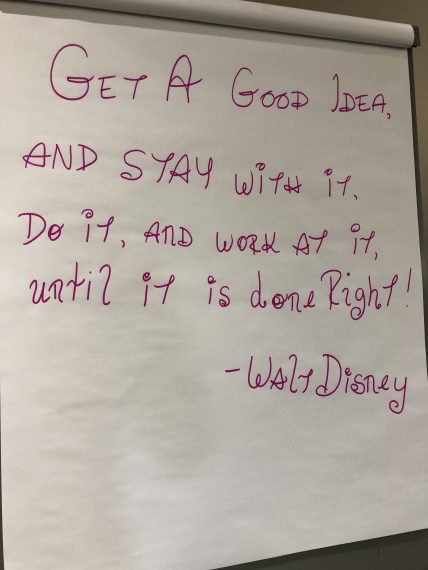 Get A Good Idea,
AND STAY WITH iT.
Do iT, AND WORK AT iT,
until iT is done Right!
-WALT Disney